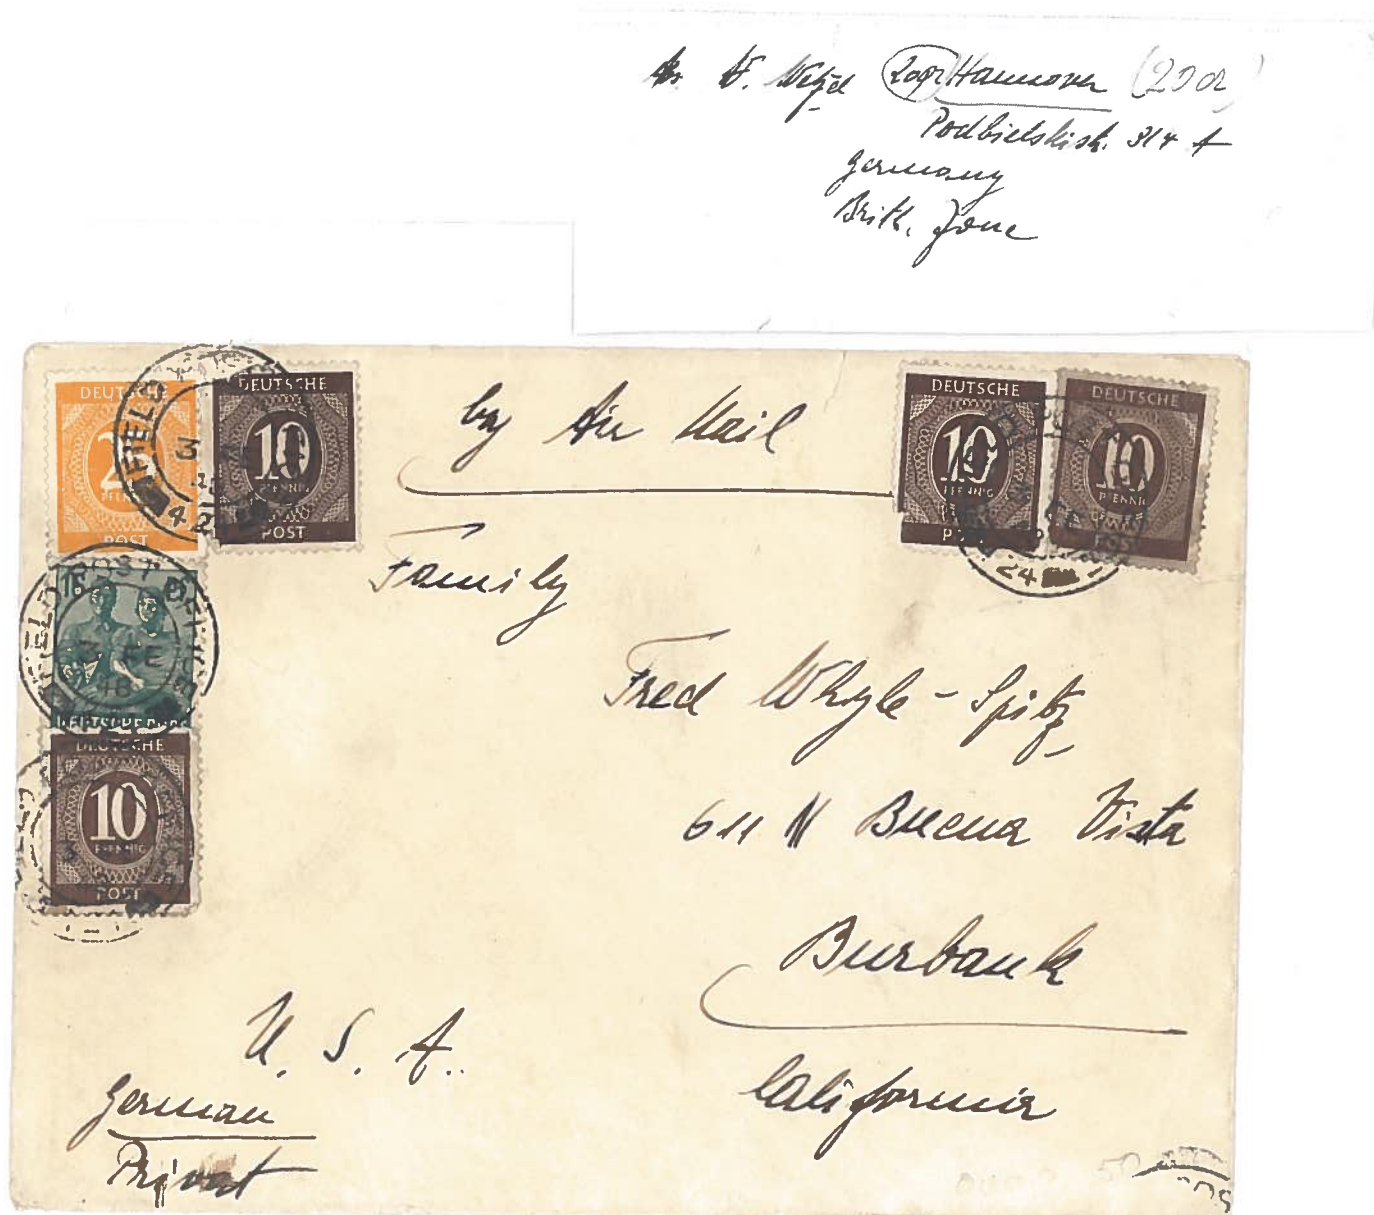 W. Wetzel Hannover (20a)
Podbielskistr. 314 A
Germany
Brith. Zone
by Air Mail
DEUTSCHE
25
PFENNIG
POST
DEUTSCHE
10
PFENNIG
POST
DEUTSCHE
10
PFENNIG
POST
DEUTSCHE
10
PFENNIG
POST
FIELD POST OFFICE
3 FE
48
16
DEUTSCHE POST
DEUTSCHE
10
PFENNIG
POST
Family
Fred Whyle - Spitz
611 N Buena Vista
Burbank
California
U. S. A.
German
Privat